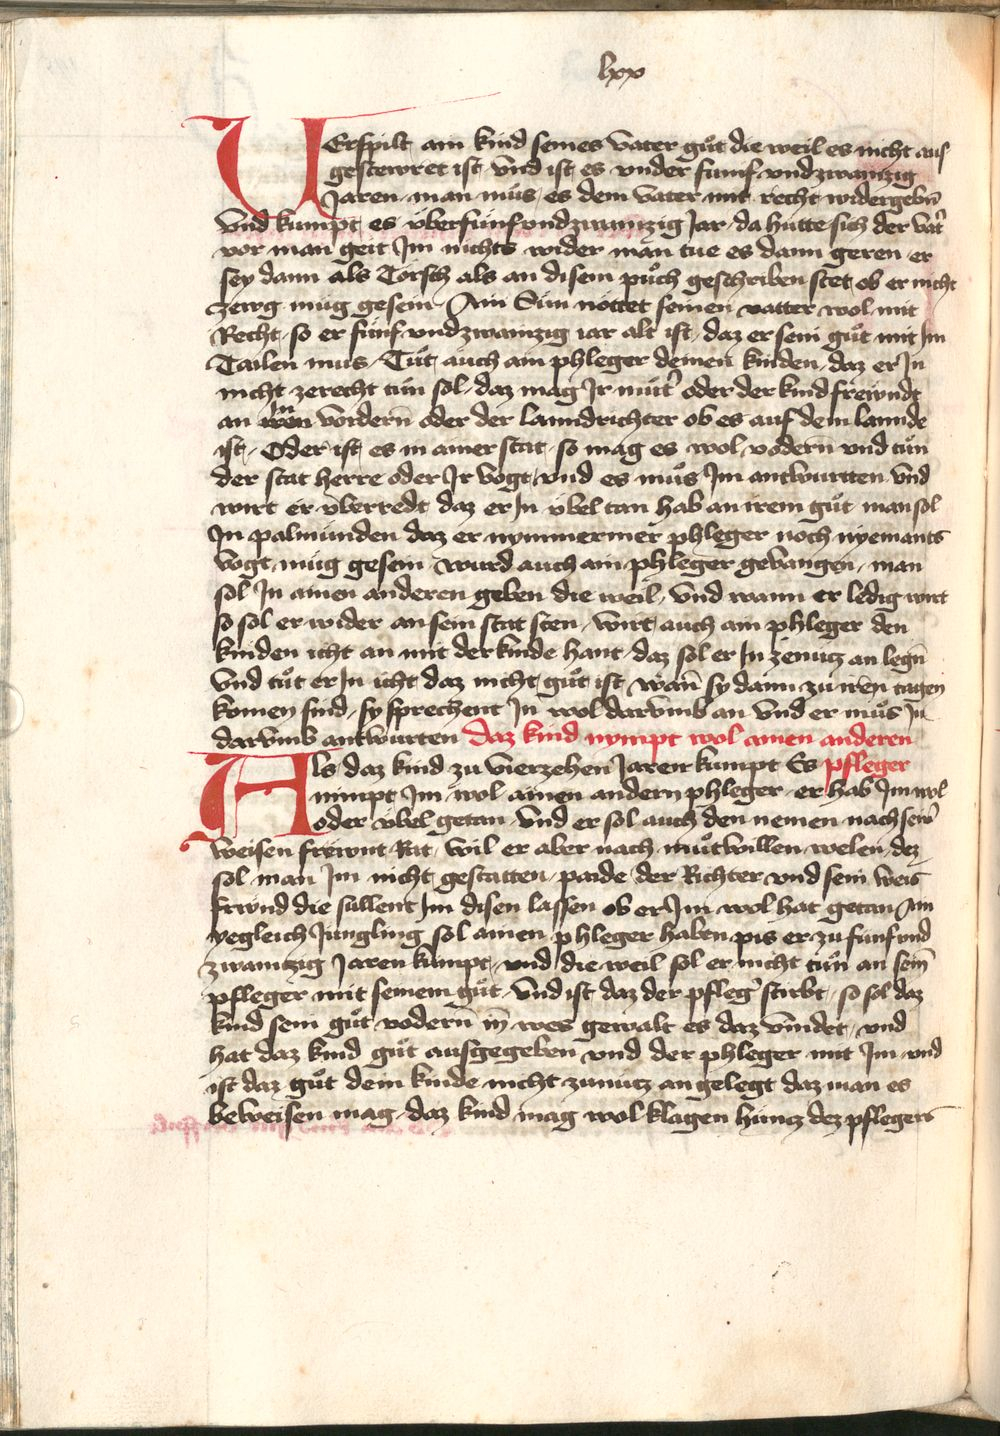 lxx
VErspilt ain kind seines vater gůt die weil es nicht aus
gestewret ist vnd ist es vnder funf vndzwainzig
Jaren man můs es dem vater mit recht widergebn̄
Vnd kumpt es vber funfvndzwainzig Jar da hütte sich der vat̓
vor man geit Jm nichts wider man tue es dann geren er
sey dann als Torsch als an disem půch geschriben stet ob er nicht
zewg müg gesein Ain Sun nottet seinen vatter wol mit
Recht so er fünf vndzwainzig iar alt ist daz er sein gůt mit Im
Tailen mus Tůt auch ain phleger deinen kinden daz er Jn
nicht zerecht tůn sol daz mag Jr můt̓ oder der kind frewndt
an in vordern̄ oder der lanndrichter ob es auf dem lannde
ist Oder ist es in ainer stat so mag es wol vodern̄ vnd tůn
der stat herre oder Jr vogt vnd es můs Jm antwurtten vnd
wirt er vberredt daz er Jn vbel tan hab an irem gůt man sol
Jn palmunden daz er nymmermer phleger noch nyemants
vogt müg gesein wurd auch ain phleger gevangen man
sol Jn ainen anderen geben die weil vnd wann er ledig wirt
so sol er wider an sein stat sten wirt auch ain phleger den
kinden icht an mit der kinde hant daz sol er Jn zenutz an legn̄
vnd tůt er Jn icht daz nicht gůt ist wan̄ sy dann zu iren tagen
komen sind sy sprechent Jn wol darvmb an vnd er můs Jn
darvmb antwurten daz kind nympt wol ainen anderen
Als daz kind zu vierzehen Jaren kumpt Es pfleger
nimpt Jm wol ainen andern phleger er hab Jm wol
oder vbel getan vnd er sol auch den nemen nach sein̓
weisen frewnt Rat wil er aber nach můtwillen welen dez
sol man Jm nicht gestatten paide der Richter vnd sein weis
frewnd die sullent Jm disen lassen ob er Jm wol hat getan Ain
yegleich Jungling sol ainen phleger haben pis er zu funf vnd
zwaintzig Jaren kumpt vnd die weil sol er nicht tůn an sein̄
pfleger mit seinem gůt vnd ist daz der pfleg̓ stirbt so sol daz
kind sein gůt vodern̄ in̄ wes gewalt es daz vindet vnd
hat daz kind gůt ausgegeben vnd der phleger mit Jm vnd
ist daz gůt dem kinde nicht zunutz angelegt daz man es
beweisen mag daz kind mag wol klagen hüntz dez pflegers